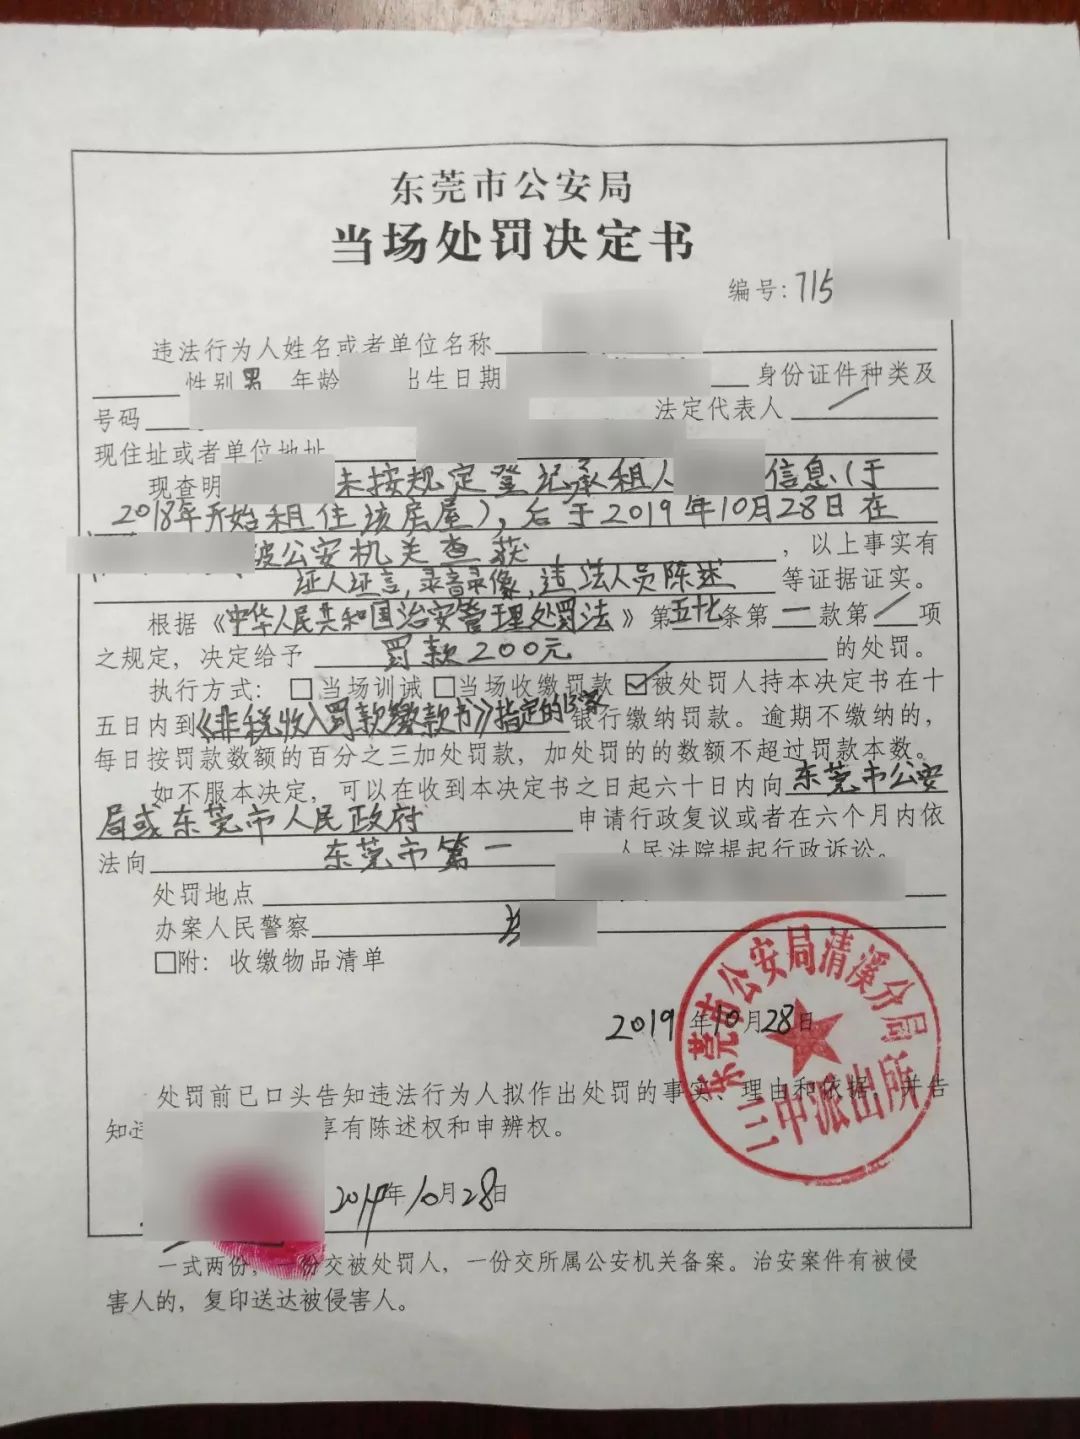 东莞市公安局
当场处罚决定书
编号：715
违法行为人姓名或者单位名称
性别 男 年龄 出生日期 身份证件种类及
号码 法定代表人 /
现住址或者单位地址
现查明 未按规定登记承租人 信息(于
2018年开始租住该房屋)，后于2019年10月28日在
被公安机关查获 ，以上事实有
证人证言，录音录像，违法人员陈述 等证据证实。
根据《中华人民共和国治安管理处罚法》第五十七条第一款第/项
之规定，决定给予 罚款200元 的处罚。
执行方式：□当场训诫□当场收缴罚款☑被处罚人持本决定书在十
五日内到《非税收入罚款缴款书》指定的13家银行缴纳罚款。逾期不缴纳的，
每日按罚款数额的百分之三加处罚款，加处罚的的数额不超过罚款本数。
如不服本决定，可以在收到本决定书之日起六十日内向东莞市公安
局或东莞市人民政府 申请行政复议或者在六个月内依
法向 东莞市第一 人民法院提起行政诉讼。
处罚地点
办案人民警察
□附：收缴物品清单
东莞市公安局清溪分局
三中派出所
2019年10月28日
处罚前已口头告知违法行为人拟作出处罚的事实、理由和依据，并告
知违 享有陈述权和申辨权。
2019年10月28日
一式两份，一份交被处罚人，一份交所属公安机关备案。治安案件有被侵
害人的，复印送达被侵害人。